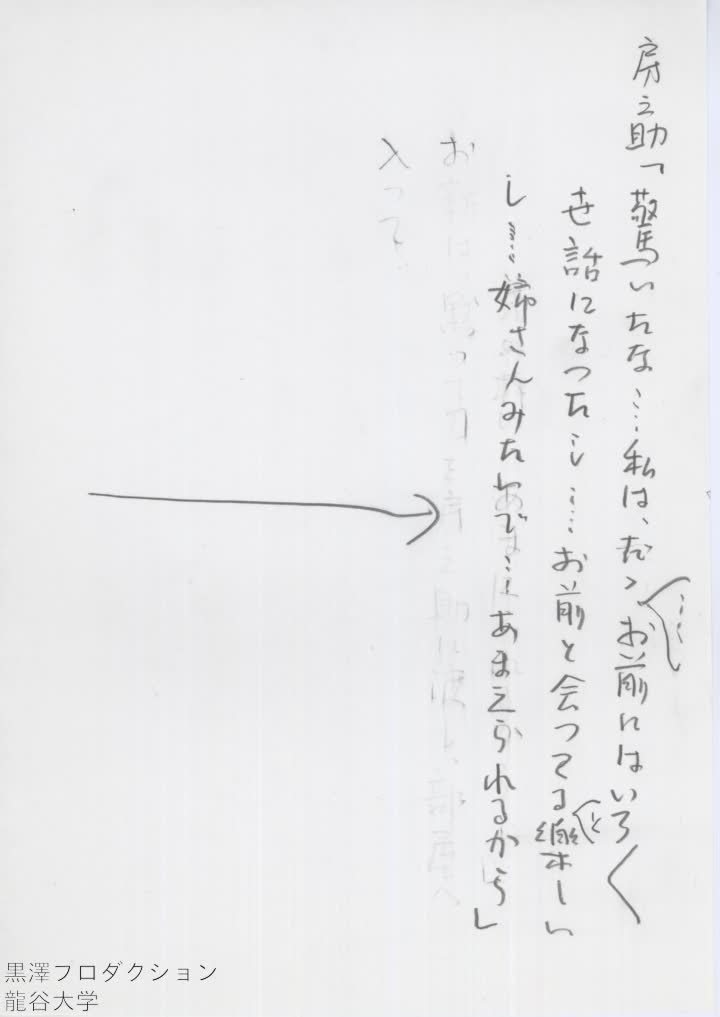 房之助「驚いたな……私は、たゞお前にはいろ〱
……
世話になったし……お前と会ってる楽しい
と
し……姉さんみたいで……あまえられるから」
お新は、黙って刀を房之助に渡し、部屋へ
入って、
黒澤プロダクション
龍谷大学